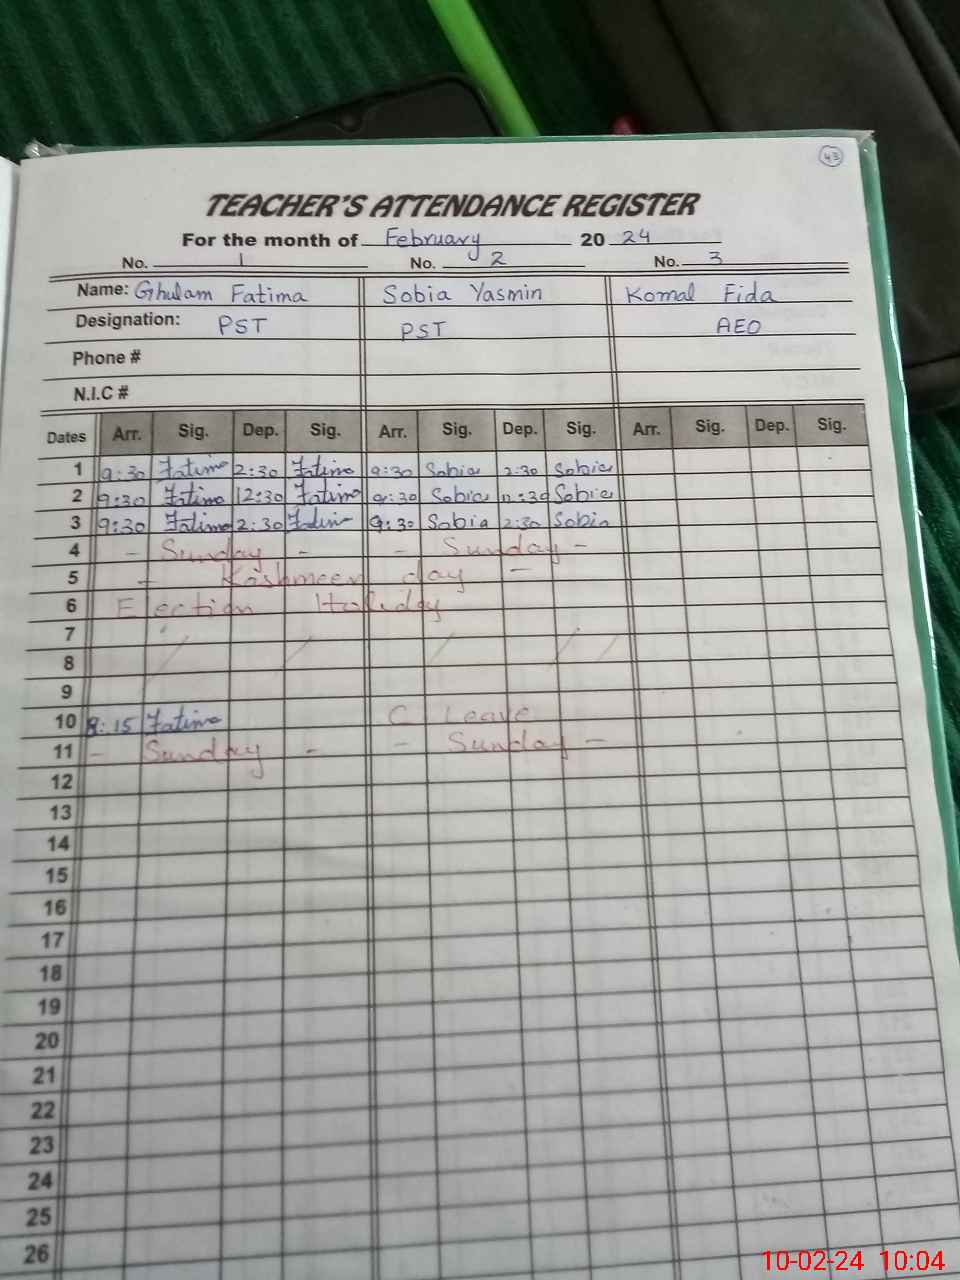 43
TEACHER'S ATTENDANCE REGISTER
For the month of February 20 24
No. 1 No. 2 No. 3
Name: Ghulam Fatima Sobia Yasmin Komal Fida
Designation: PST PST AEO
Phone #
N.I.C #
Dates Arr. Sig. Dep. Sig. Arr. Sig. Dep. Sig. Arr. Sig. Dep. Sig.
1 9:30 Fatima 2:30 Fatima 9:30 Sobia 2:30 Sobia
2 9:30 Fatima 12:30 Fatima 9:30 Sobia 12:30 Sobia
3 9:30 Fatima 2:30 Fatima 9:30 Sobia 2:30 Sobia
4 - Sunday - - Sunday -
5 - Kashmeer day -
6 Election Holiday
7
8
9
10 8:15 Fatima C Leave
11 - Sunday - - Sunday -
12
13
14
15
16
17
18
19
20
21
22
23
24
25
26
10-02-24 10:04